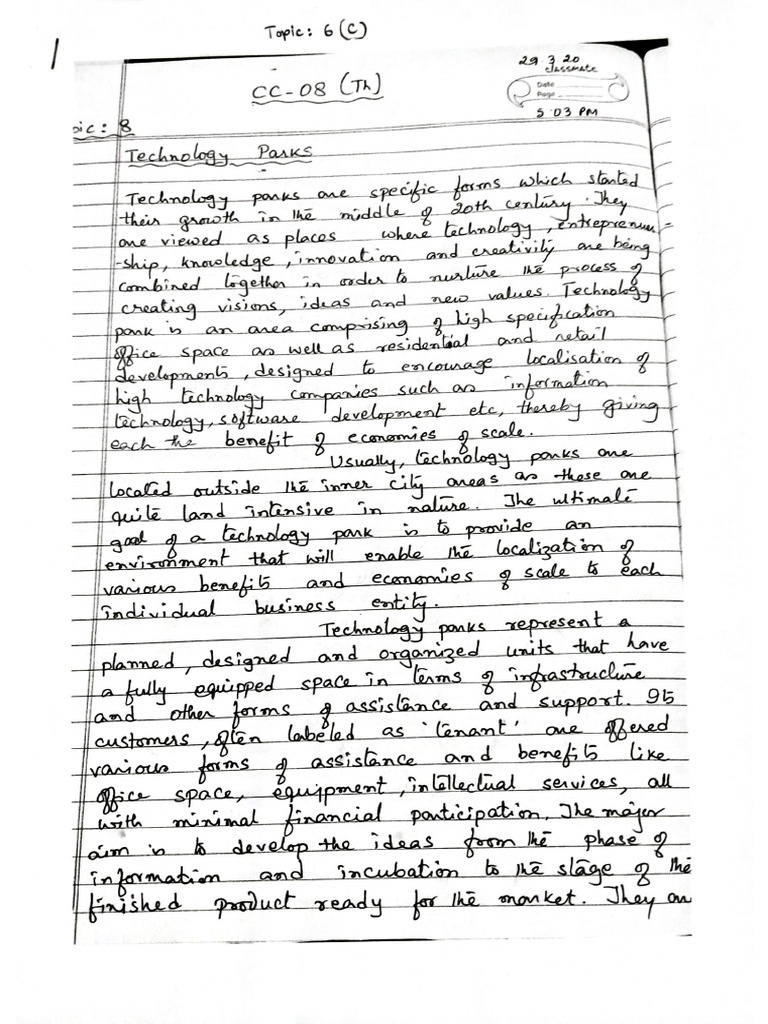 Topic: 6 (C)
1
29.3.20
classmate
Date
Page
5:03 PM
CC-08 (Th)
pic: 8
Technology Parks
Technology parks are specific forms which started
their growth in the middle of 20th century. They
are viewed as places where technology, entrepreneur-
-ship, knowledge, innovation and creativity are being
combined together in order to nurture the process of
creating visions, ideas and new values. Technology
park is an area comprising of high specification
office space as well as residential and retail
developments, designed to encourage localisation of
high technology companies such as information
technology, software development etc, thereby giving
each the benefit of economies of scale.
Usually, technology parks are
located outside the inner city areas as these are
quite land intensive in nature. The ultimate
goal of a technology park is to provide an
environment that will enable the localization of
various benefits and economies of scale to each
individual business entity.
Technology parks represent a
planned, designed and organized units that have
a fully equipped space in terms of infrastructure
and other forms of assistance and support. Its
customers, often labeled as 'tenant' are offered
various forms of assistance and benefits like
office space, equipment, intellectual services, all
with minimal financial participation. The major
aim is to develop the ideas from the phase of
information and incubation to the stage of the
finished product ready for the market. They are